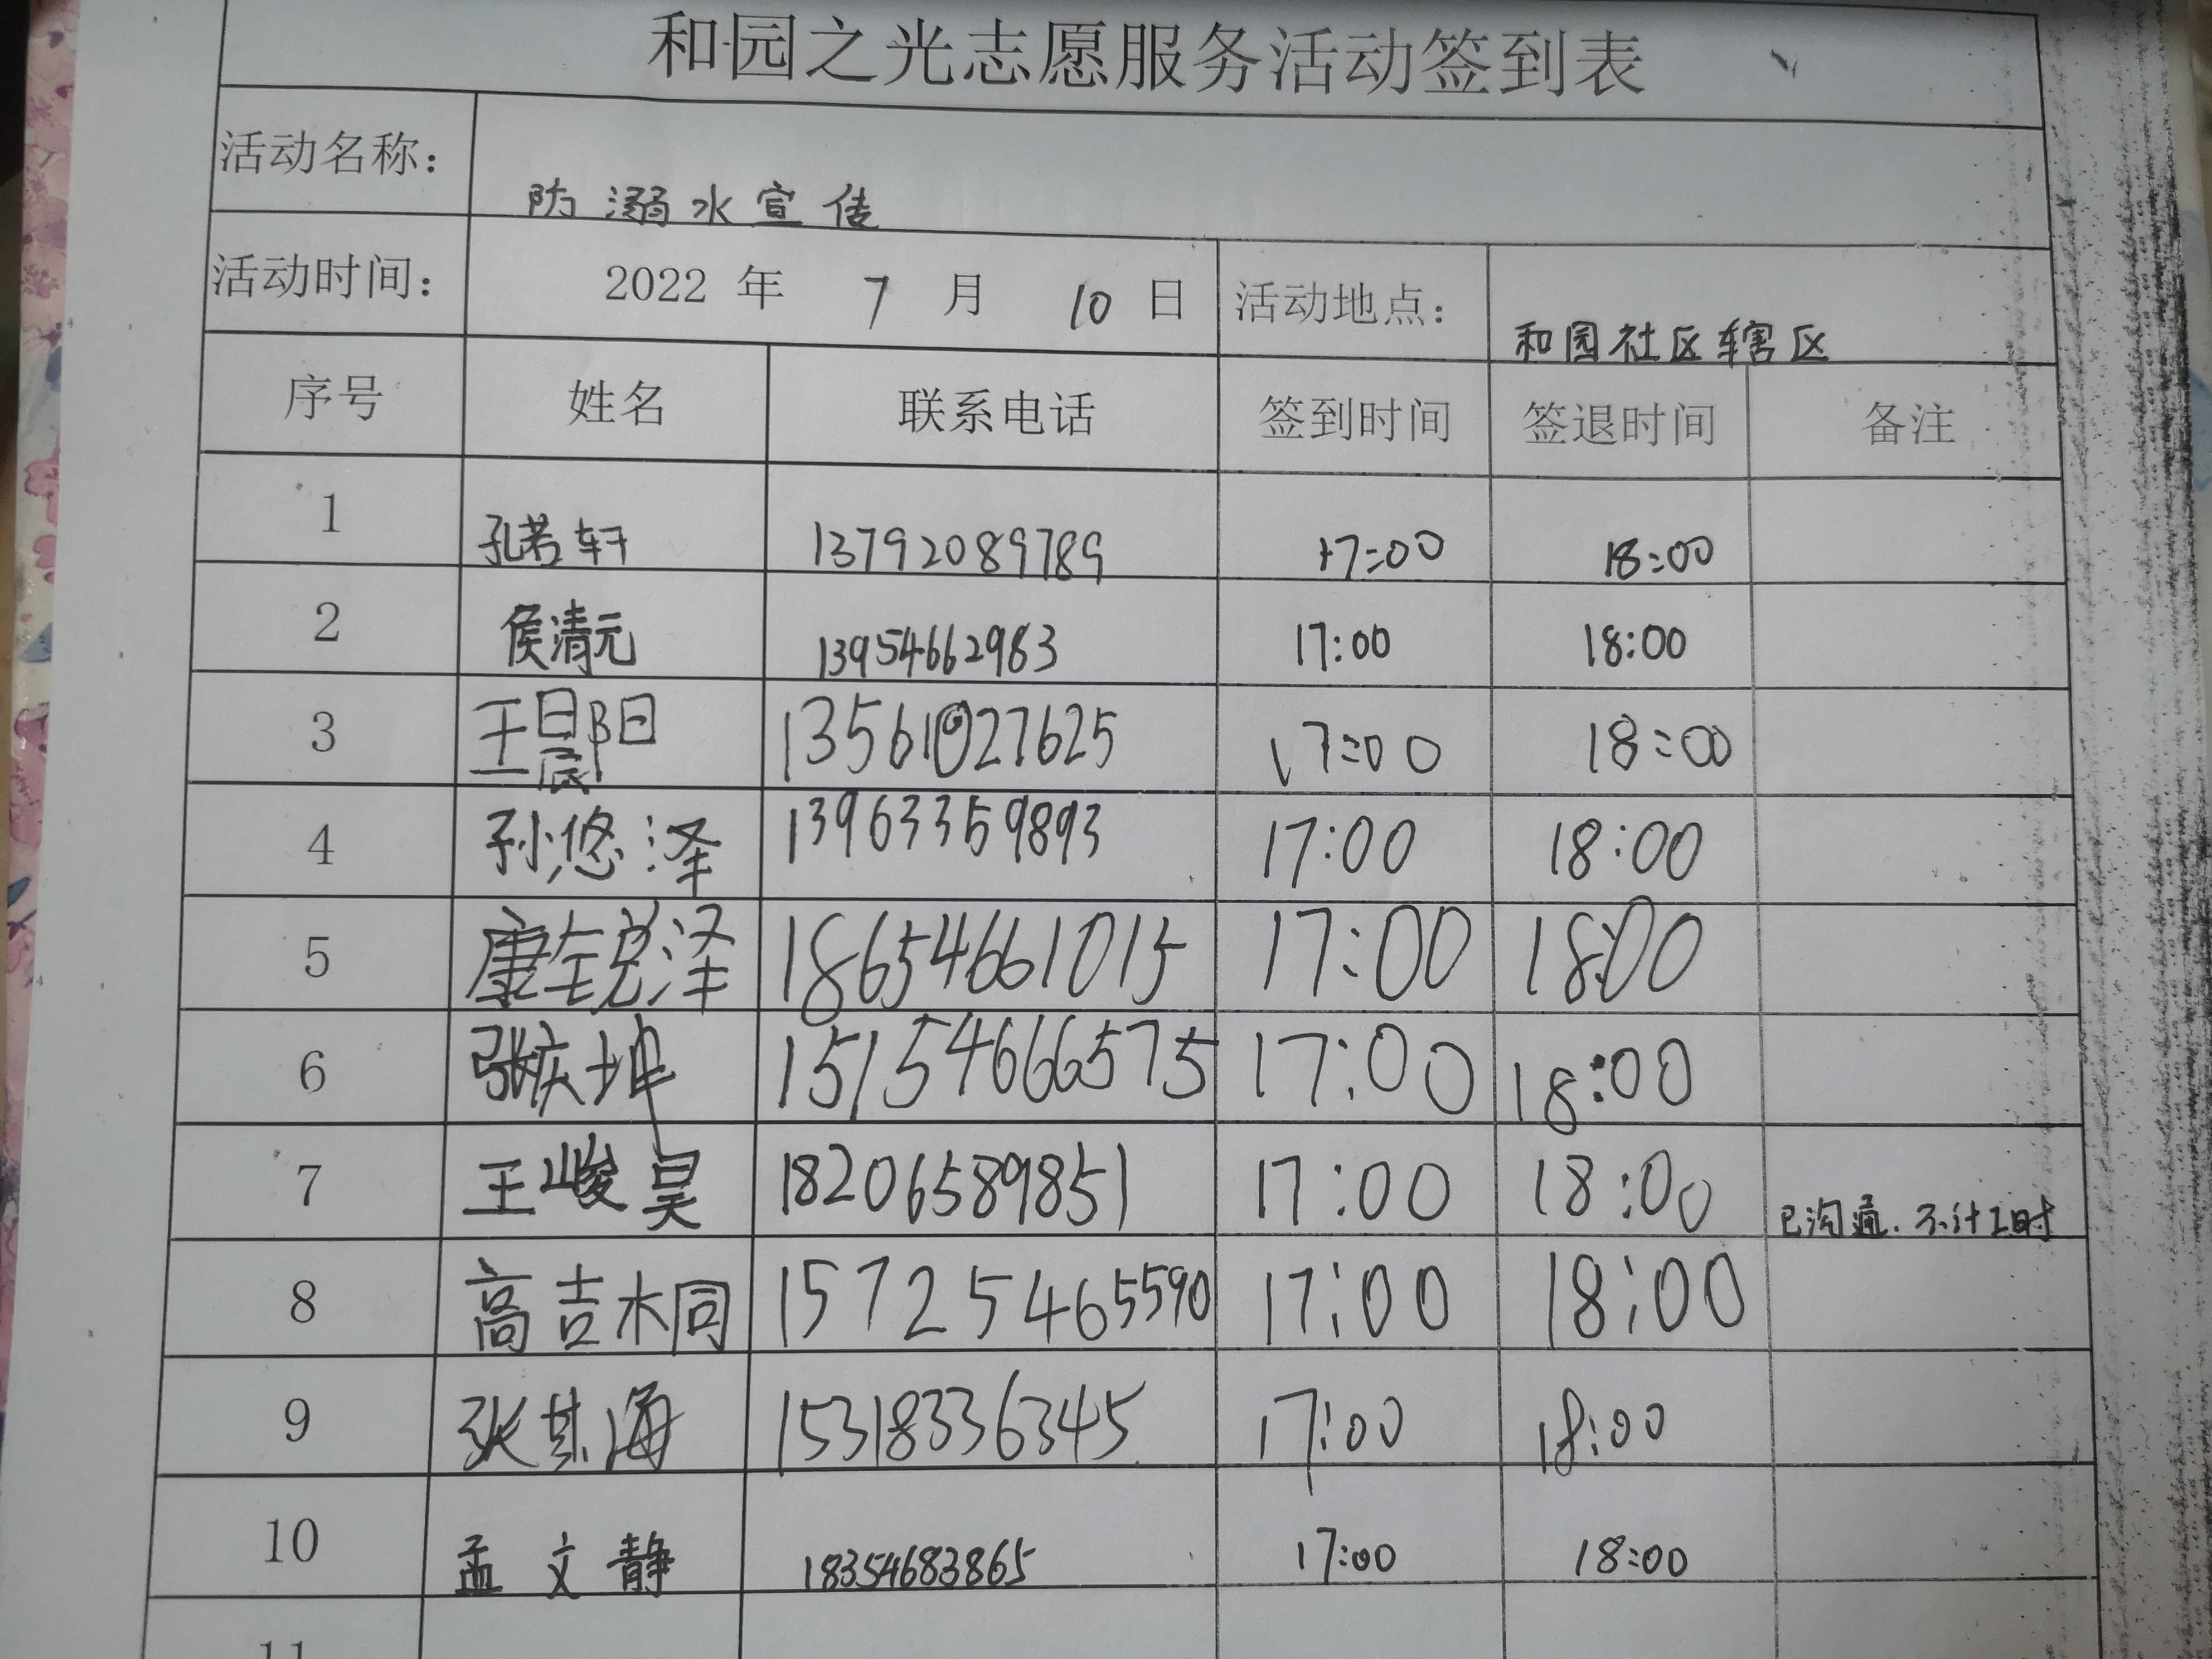 和园之光志愿服务活动签到表
活动名称： 防溺水宣传
活动时间： 2022 年 7 月 10 日 活动地点： 和园社区辖区
序号 姓名 联系电话 签到时间 签退时间 备注
1 孔若轩 13792089789 17:00 18:00
2 侯清元 13954662983 17:00 18:00
3 王晨阳 13561027625 17:00 18:00
4 孙悠泽 13963359893 17:00 18:00
5 康锐泽 18654661015 17:00 18:00
6 张庆坤 15154666575 17:00 18:00
7 王峻昊 18206589851 17:00 18:00 已沟通.不计工时
8 高吉桐 15725465590 17:00 18:00
9 张其海 15318336345 17:00 18:00
10 孟文静 18354683865 17:00 18:00
11